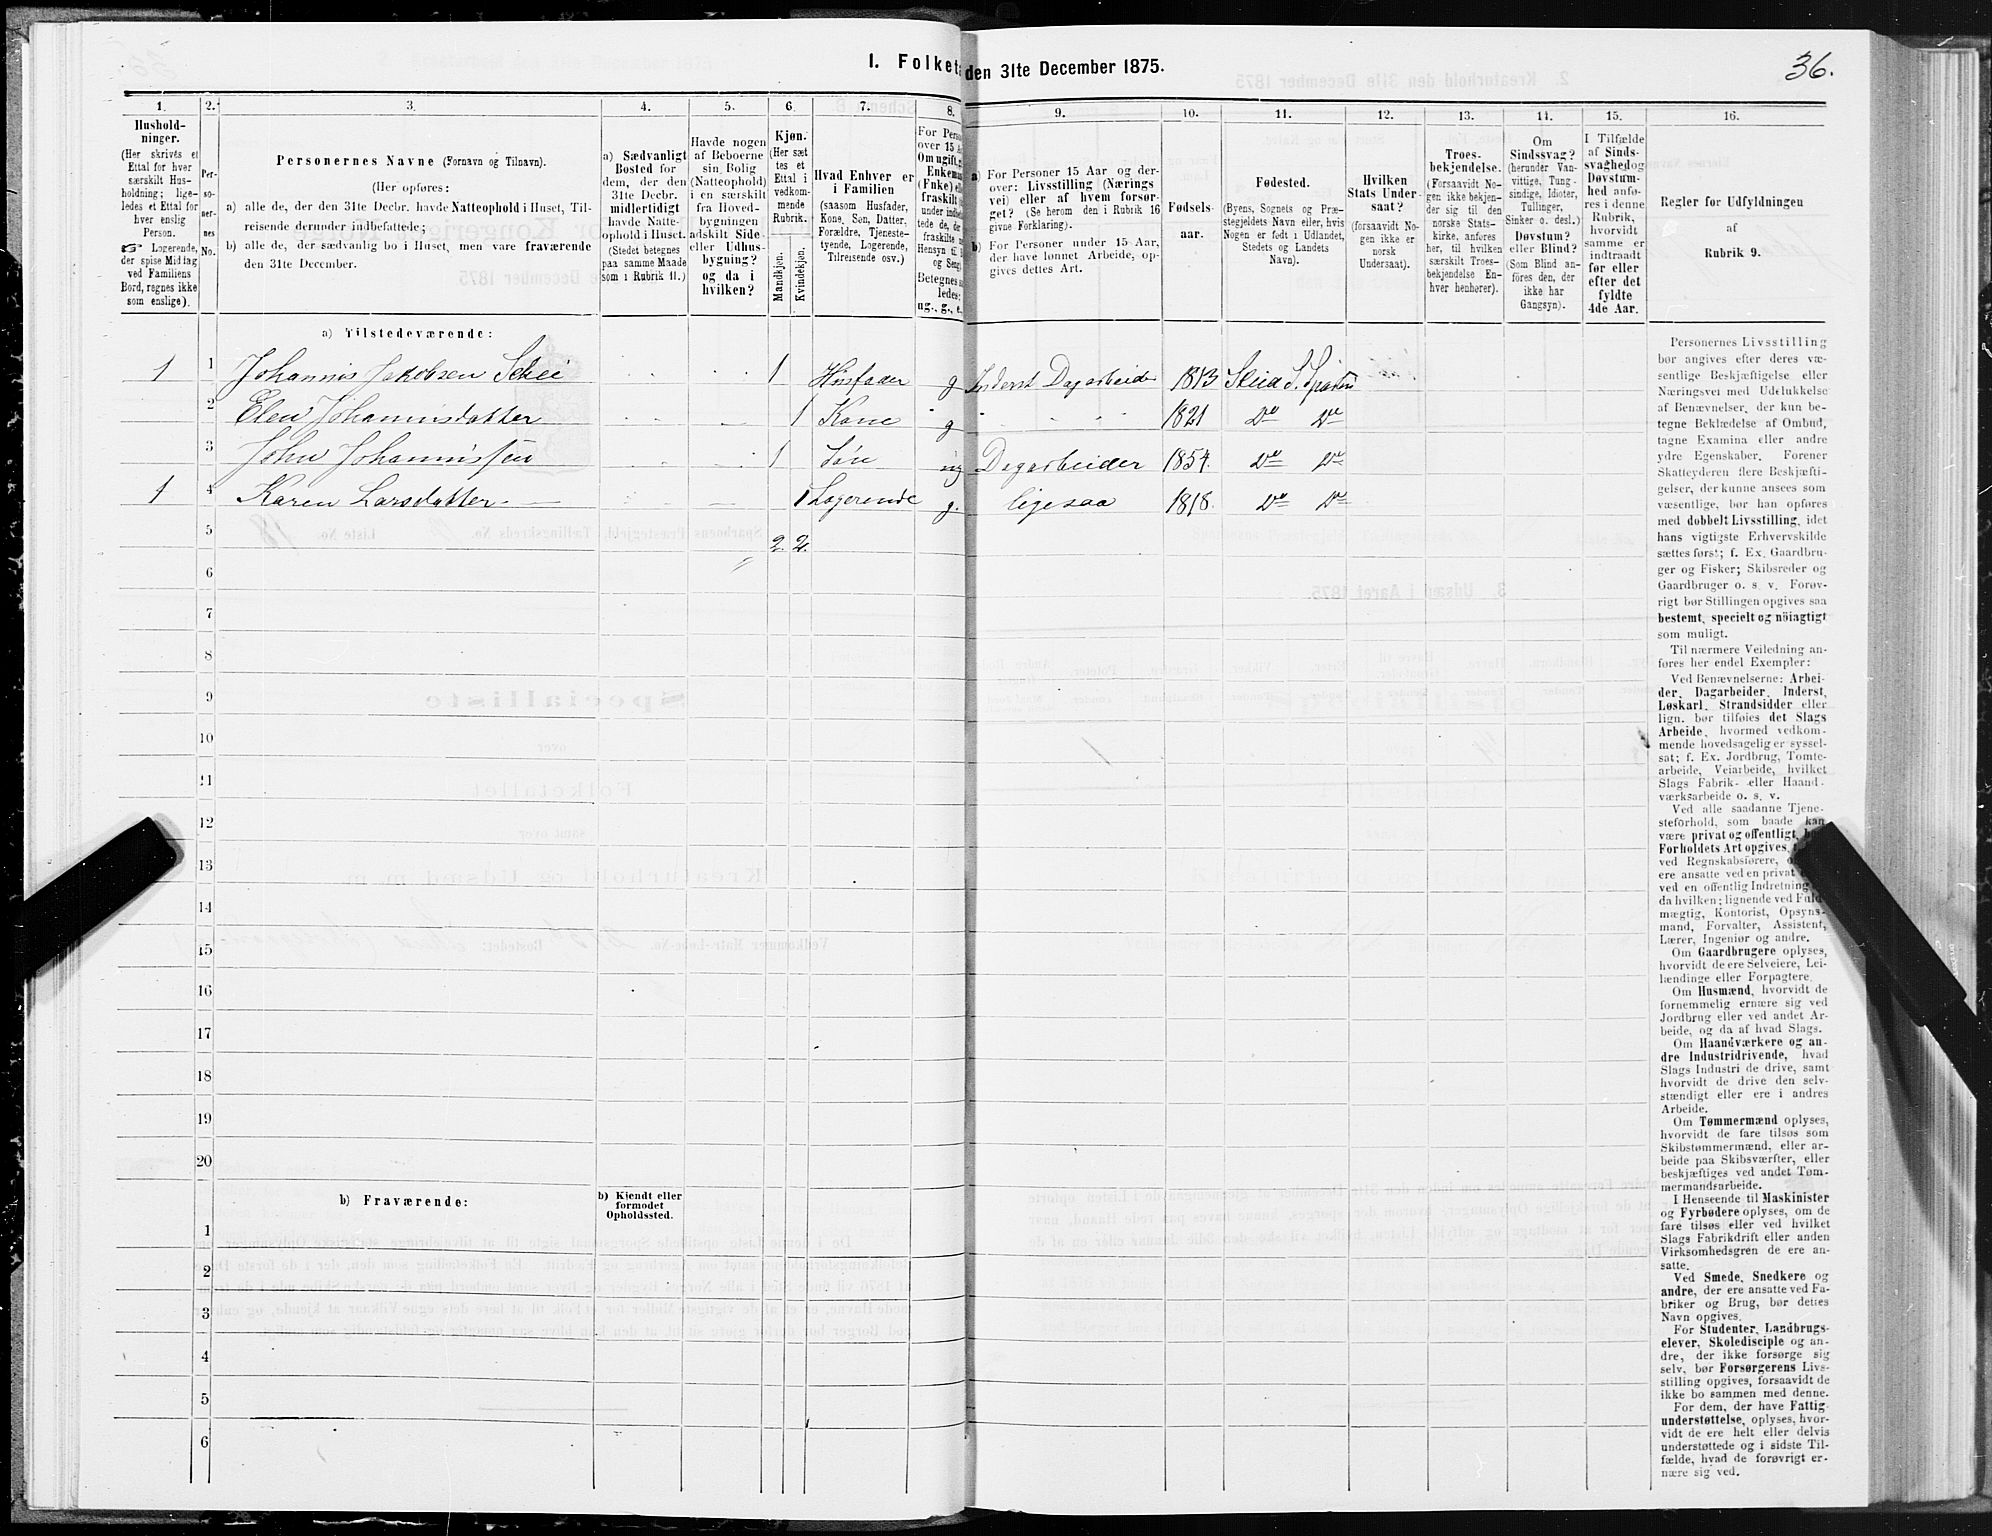 36.
I. Folket
den 31te December 1875.
1. 2. 3. 4. 5. 6. 7. 8. 9. 10. 11. 12. 13. 14. 15. 16.
Hushold-
ninger.
(Her skrives et
Ettal for hver
særskilt Hus-
holdning; lige-
ledes et Ettal for
hver enslig
Person.
☞ Logerende,
der spise Middag
ved Familiens
Bord, regnes ikke
som enslige).
Per-
so-
ner-
nes
No.
Personernes Navne (Fornavn og Tilnavn).
(Her opføres:
a) alle de, der den 31te Decbr. havde Natteophold i Huset, Til-
reisende derunder indbefattede;
b) alle de, der sædvanlig bo i Huset, men vare fraværende
den 31te December.
a) Sædvanligt
Bosted for
dem, der den
31te Decbr.
midlertidigt
havde Natte-
ophold i Huset.
(Stedet betegnes
paa samme Maade
som i Rubrik 11.)
Havde nogen
af Beboerne
sin Bolig
(Natteophold)
i en særskilt
fra Hoved-
bygningen
adskilt Side-
eller Udhus-
bygning?
og da i
hvilken?
Kjøn.
(Her sæt-
tes et
Ettal i
vedkom-
mende
Rubrik.
Mandkjøn.
Kvindekjøn.
Hvad Enhver er
i Familien
(saasom Husfader,
Kone, Søn, Datter,
Forældre, Tjeneste-
tyende, Logerende,
Tilreisende osv.)
For Perso
over 15 A
Om ugift, g
Enkema
(Enke) el
fraskilt
under indbe
fraskilte
Hensyn til
og Seng
Betegnes s
ledes:
ug., g., e.
a) For Personer 15 Aar og der-
over: Livsstilling (Nærings
vei) eller af hvem forsør-
get? (Se herom den i Rubrik 16
givne Forklaring).
b) For Personer under 15 Aar,
der have lønnet Arbeide, op-
gives dettes Art.
Fødsels-
aar.
Fødested.
(Byens, Sognets og Præ-
stegjeldets Navn eller, hvis
Nogen er født i Udlandet,
Stedets og Landets
Navn).
Hvilken
Stats Under-
saat?
(forsaavidt No-
gen ikke er
norsk
Undersaat).
Troes-
bekjendelse.
(Forsaavidt No-
gen ikke bekjen-
der sig til den
norske Stats-
kirke, anføres
her, til hvilken
særskilt Troes-
bekjendelse En-
hver henhører).
Om
Sindssvag?
(herunder Van-
vittige, Tung-
sindige, Idioter,
Tullinger,
Sinker o. desl.)
Døvstum?
eller Blind?
(Som Blind an-
føres den, der
ikke har
Gangsyn).
I Tilfælde
af Sinds-
svaghed og
Døvstum-
hed anfø-
res i denne
Rubrik,
hvorvidt
samme er
indtraadt
før eller
efter det
fyldte
4de Aar.
Regler for Udfyldningen
af
Rubrik 9.
a) Tilstedeværende:
1 1 Johannis Jakobsen Schei 1 Husfader g Inderst Dagarbeide 1813 Skeid S. Sparbu
2 Elen Johannisdatter 1 Kone g " " " 1821 Do Do
3 John Johannissen 1 Søn ug Dagarbeider 1854. Do Do
1 4 Karen Larsdatter 1 Logerende g. ligesaa 1818. Do Do
5 2. 2.
6
7
8
9
10
11
12
13
14
15
16
17
18
19
20
b) Fraværende:
b) Kjendt eller
formodet
Opholdssted.
1
2
3
4
5
6
Personernes Livsstilling
bør angives efter deres væ-
sentlige Beskjæftigelse eller
Næringsvei med Udelukkelse
af Benævnelser, der kun be-
tegne Beklædelse af Ombud,
tagne Examina eller andre
ydre Egenskaber. Forener
Skatteyderen flere Beskjæfti-
gelser, der kunne ansees som
væsentlige, bør han opføres
med dobbelt Livsstilling, idet
hans vigtigste Erhvervskilde
sættes først; f. Ex. Gaardbru-
ger og Fisker; Skibsreder og
Gaardbruger o. s. v. Forøv-
rigt bør Stillingen opgives saa
bestemt, specielt og nøiagtigt
som muligt.
Til nærmere Veiledning an-
føres her endel Exempler:
Ved Benævnelserne: Arbei-
der, Dagarbeider, Inderst,
Løskarl, Strandsidder eller
lign. bør tilføies det Slags
Arbeide, hvormed vedkom-
mende hovedsagelig er syssel-
sat; f. Ex. Jordbrug, Tomte-
arbeide, Veiarbeide, hvilket
Slags Fabrik- eller Haand-
værksarbeide o. s. v.
Ved alle saadanne Tjene-
steforhold, som baade kan
være privat og offentligt,
Forholdets Art opgives,
ved Regnskabsførere,
ere ansatte ved en privat
ved en offentlig Indretning
da hvilken; lignende ved Fuld-
mægtig, Kontorist, Opsyns-
mand, Forvalter, Assistent,
Lærer, Ingeniør og andre.
Om Gaardbrugere oplyses,
hvorvidt de ere Selveiere, Lei-
lændinge eller Forpagtere.
Om Husmænd, hvorvidt de
fornemmelig ernære sig ved
Jordbrug eller ved andet Ar-
beide, og da af hvad Slags.
Om Haandværkere og an-
dre Industridrivende, hvad
Slags Industri de drive, samt
hvorvidt de drive den selv-
stændigt eller ere i andres
Arbeide.
Om Tømmermænd oplyses,
hvorvidt de fare tilsøs som
Skibstømmermænd, eller ar-
beide paa Skibsværfter, eller
beskjæftiges ved andet Tøm-
mermandsarbeide.
I Henseende til Maskinister
og Fyrbødere oplyses, om de
fare tilsøs eller ved hvilket
Slags Fabrikdrift eller anden
Virksomhedsgren de ere an-
satte.
Ved Smede, Snedkere og
andre, der ere ansatte ved Fa-
briker og Brug, bør dettes
Navn opgives.
For Studenter, Landbrugs-
elever, Skoledisciple og an-
dre, der ikke forsørge sig
selv, bør Forsørgerens Livs-
stilling opgives, forsaavidt de
ikke bo sammen med denne.
For dem, der have Fattig-
understøttelse, oplyses, hvor-
vidt de ere helt eller delvis
understøttede og i sidste Til-
fælde, hvad de forøvrigt er-
nære sig ved.